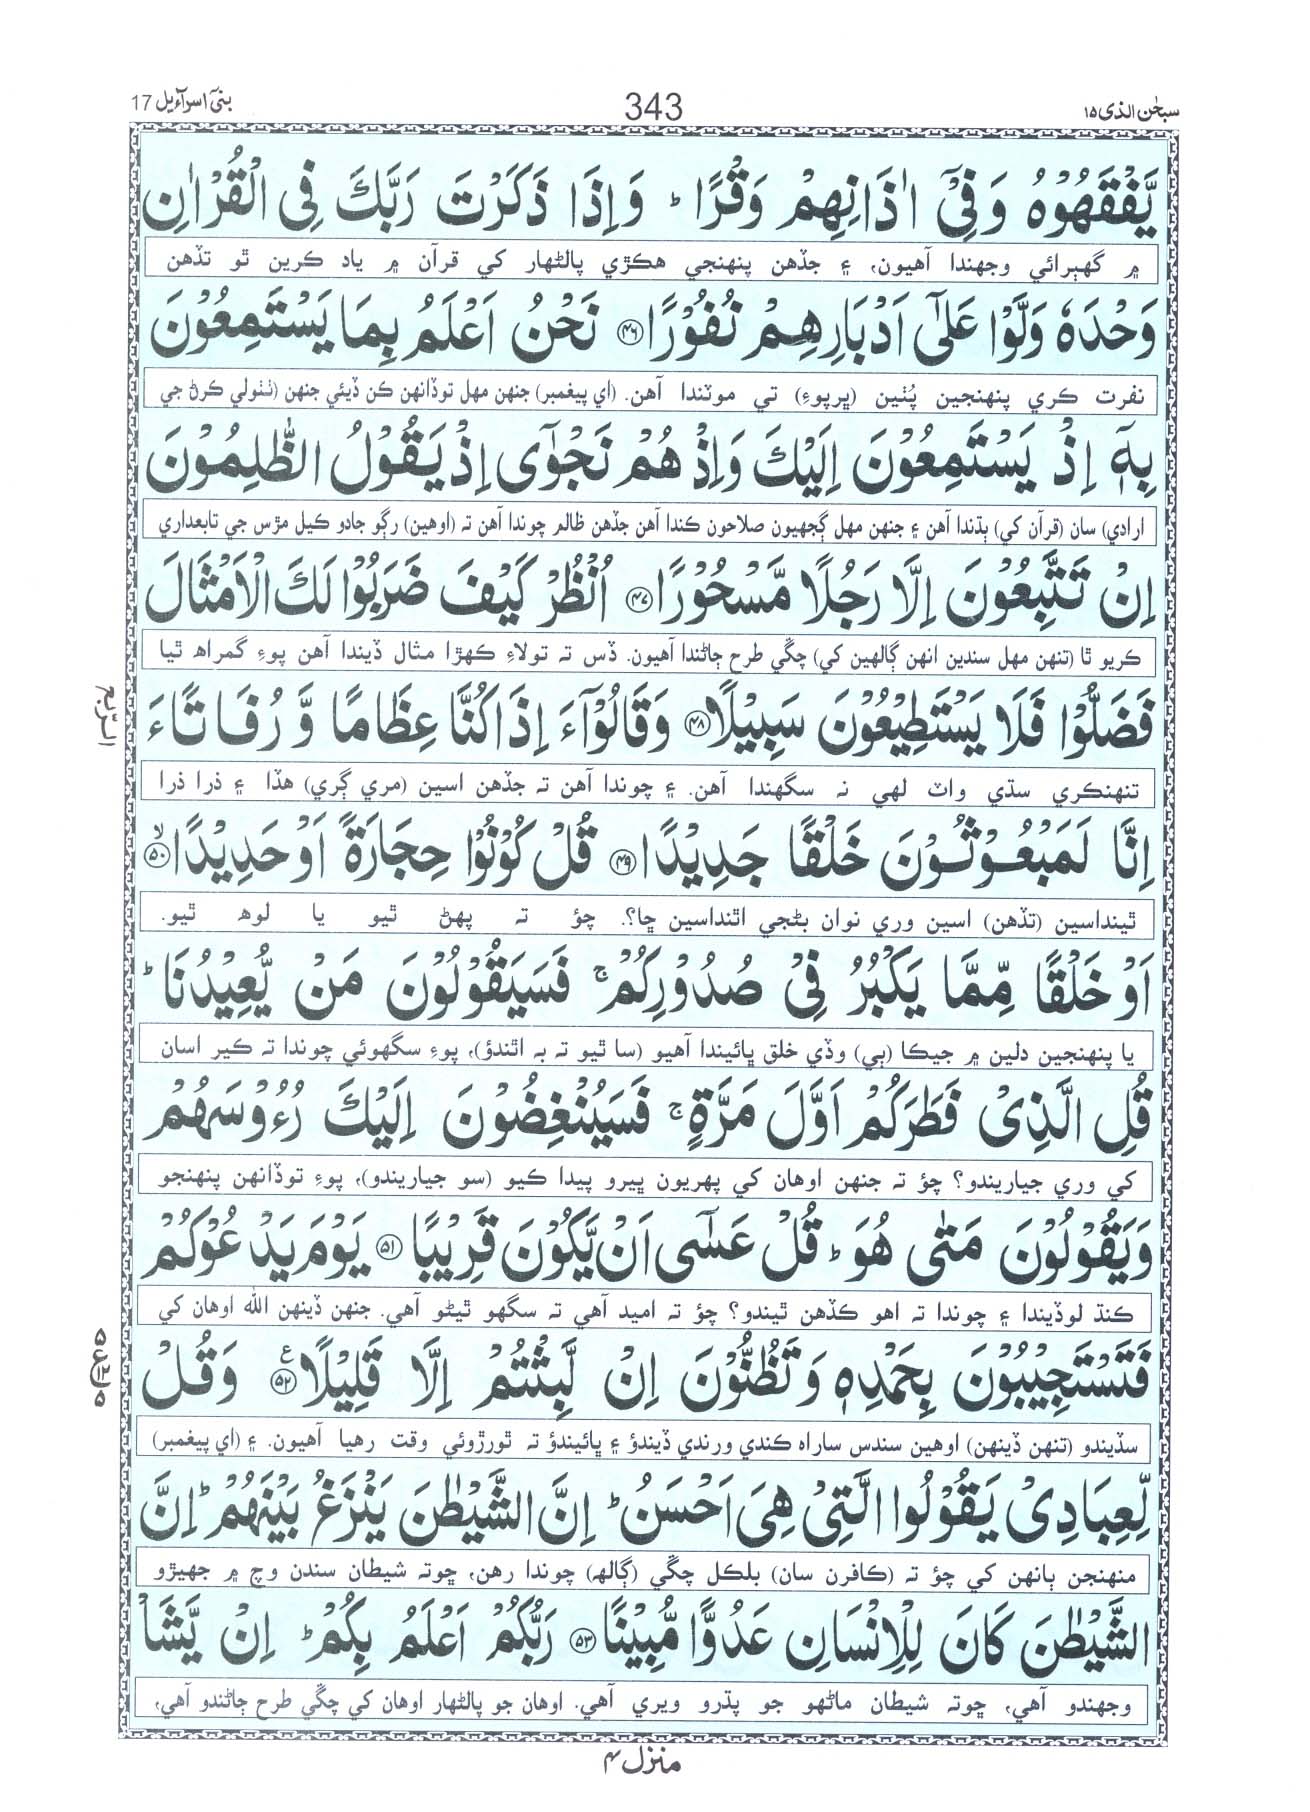 سبحٰن الذی ۱۵
343
بنیٓ اسرآءیل 17
یَّفْقَهُوْهُ وَ فِیْۤ اٰذَانِهِمْ وَقْرًا ؕ وَ اِذَا ذَكَرْتَ رَبَّكَ فِی الْقُرْاٰنِ
۾ گهٻرائي وجهندا آهيون، ۽ جڏهن پنهنجي هڪڙي پالڻهار کي قرآن ۾ ياد ڪرين ٿو تڏهن
وَحْدَهٗ وَلَّوْا عَلٰۤی اَدْبَارِهِمْ نُفُوْرًا ﴿۴۶﴾ نَحْنُ اَعْلَمُ بِمَا یَسْتَمِعُوْنَ
نفرت ڪري پنهنجين پُٺين (ڀرپوءِ) تي موٽندا آهن. (اي پيغمبر) جنهن مهل توڏانهن ڪن ڏيئي جنهن (ٺٺولي ڪرڻ جي
بِهٖۤ اِذْ یَسْتَمِعُوْنَ اِلَیْكَ وَ اِذْ هُمْ نَجْوٰۤی اِذْ یَقُوْلُ الظّٰلِمُوْنَ
ارادي) سان (قرآن کي) ٻڌندا آهن ۽ جنهن مهل ڳجهيون صلاحون ڪندا آهن جڏهن ظالم چوندا آهن ته (اوهين) رڳو جادو ڪيل مڙس جي تابعداري
اِنْ تَتَّبِعُوْنَ اِلَّا رَجُلًا مَّسْحُوْرًا ﴿۴۷﴾ اُنْظُرْ كَیْفَ ضَرَبُوْا لَكَ الْاَمْثَالَ
ڪريو ٿا (تنهن مهل سندين انهن ڳالهين کي) چڱي طرح ڄاڻندا آهيون. ڏس ته تولاءِ ڪهڙا مثال ڏيندا آهن پوءِ گمراهه ٿيا
فَضَلُّوْا فَلَا یَسْتَطِیْعُوْنَ سَبِیْلًا ﴿۴۸﴾ وَ قَالُوْۤا ءَ اِذَا كُنَّا عِظَامًا وَّ رُفَاتًا ءَ
تنهنڪري سڌي واٽ لهي نه سگهندا آهن. ۽ چوندا آهن ته جڏهن اسين (مري ڳري) هڏا ۽ ذرا ذرا
اِنَّا لَمَبْعُوْثُوْنَ خَلْقًا جَدِیْدًا ﴿۴۹﴾ قُلْ كُوْنُوْا حِجَارَةً اَوْ حَدِیْدًا ﴿۵۰﴾ۙ
ٿينداسين (تڏهن) اسين وري نوان بڻجي اٿنداسين ڇا؟. چؤ ته پهڻ ٿيو يا لوهه ٿيو.
اَوْ خَلْقًا مِّمَّا یَكْبُرُ فِیْ صُدُوْرِكُمْ ۚ فَسَیَقُوْلُوْنَ مَنْ یُّعِیْدُنَا ؕ
يا پنهنجين دلين ۾ جيڪا (ٻي) وڏي خلق ڀائيندا آهيو (سا ٿيو ته به اٿندؤ)، پوءِ سگهوئي چوندا ته ڪير اسان
قُلِ الَّذِیْ فَطَرَكُمْ اَوَّلَ مَرَّةٍ ۚ فَسَیُنْغِضُوْنَ اِلَیْكَ رُءُوْسَهُمْ
کي وري جياريندو؟ چؤ ته جنهن اوهان کي پهريون ڀيرو پيدا ڪيو (سو جياريندو)، پوءِ توڏانهن پنهنجو
وَ یَقُوْلُوْنَ مَتٰی هُوَ ؕ قُلْ عَسٰۤی اَنْ یَّكُوْنَ قَرِیْبًا ﴿۵۱﴾ یَوْمَ یَدْعُوْكُمْ
ڪنڌ لوڏيندا ۽ چوندا ته اهو ڪڏهن ٿيندو؟ چؤ ته اميد آهي ته سگهو ٿيڻو آهي. جنهن ڏينهن الله اوهان کي
فَتَسْتَجِیْبُوْنَ بِحَمْدِهٖ وَ تَظُنُّوْنَ اِنْ لَّبِثْتُمْ اِلَّا قَلِیْلًا ﴿۵۲﴾ ع وَ قُلْ
سڏيندو (تنهن ڏينهن) اوهين سندس ساراه ڪندي ورندي ڏيندؤ ۽ ڀائيندؤ ته ٿورڙوئي وقت رهيا آهيون. ۽ (اي پيغمبر)
لِّعِبَادِیْ یَقُوْلُوا الَّتِیْ هِیَ اَحْسَنُ ؕ اِنَّ الشَّیْطٰنَ یَنْزَغُ بَیْنَهُمْ ؕ اِنَّ
منهنجن ٻانهن کي چؤ ته (ڪافرن سان) بلڪل چڱي (ڳالهه) چوندا رهن، ڇوته شيطان سندن وچ ۾ جهيڙو
الشَّیْطٰنَ كَانَ لِلْاِنْسَانِ عَدُوًّا مُّبِیْنًا ﴿۵۳﴾ رَبُّكُمْ اَعْلَمُ بِكُمْ ؕ اِنْ یَّشَاْ
وجهندو آهي، ڇوته شيطان ماڻهو جو پڌرو ويري آهي. اوهان جو پالڻهار اوهان کي چڱي طرح ڄاڻندو آهي،
الرّبع
۵ ع ۱۲ ۵
منزل ۴